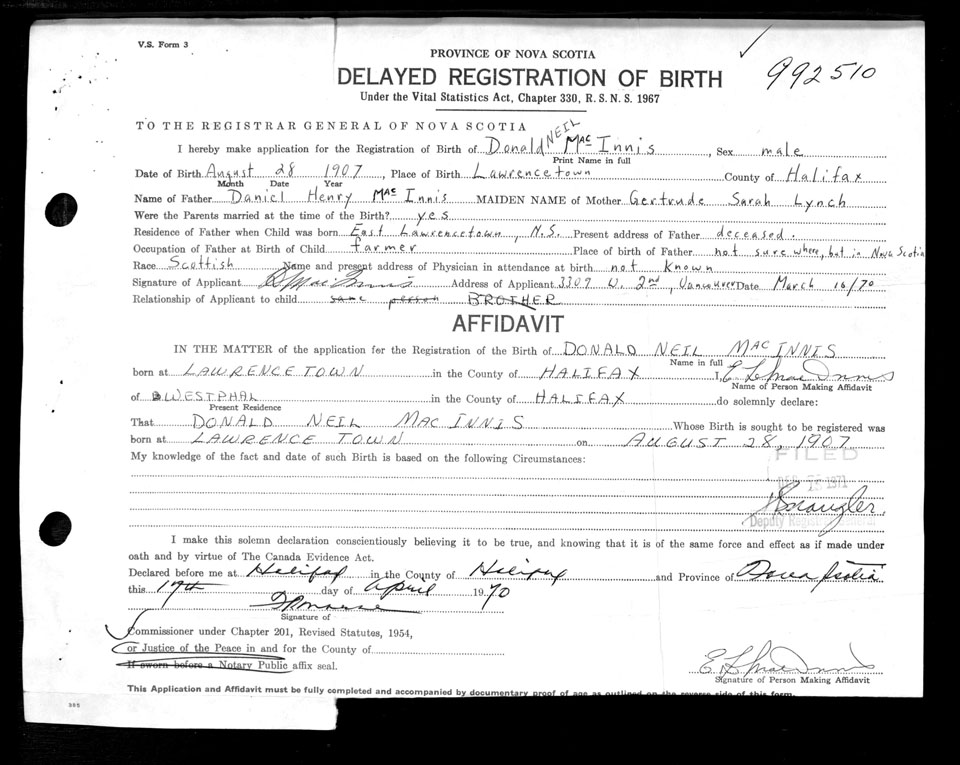 V.S. Form 3
992510
PROVINCE OF NOVA SCOTIA
DELAYED REGISTRATION OF BIRTH
Under the Vital Statistics Act, Chapter 330, R. S. N. S. 1967
TO THE REGISTRAR GENERAL OF NOVA SCOTIA
I hereby make application for the Registration of Birth of Donald NEIL Mac Innis, Sex male
Print Name in full
Date of Birth August 28 1907, Place of Birth Lawrencetown County of Halifax
Month Date Year
Name of Father Daniel Henry Mac Innis MAIDEN NAME of Mother Gertrude Sarah Lynch
Were the Parents married at the time of the Birth? yes
Residence of Father when Child was born East Lawrencetown, N.S. Present address of Father deceased.
Occupation of Father at Birth of Child farmer Place of birth of Father not sure where, but in Nova Scotia
Race Scottish Name and present address of Physician in attendance at birth not known
Signature of Applicant D MacInnis Address of Applicant 3309 W. 2nd, Vancouver Date March 16/70
Relationship of Applicant to child same person BROTHER
AFFIDAVIT
IN THE MATTER of the application for the Registration of the Birth of DONALD NEIL MAC INNIS
Name in full
born at LAWRENCETOWN in the County of HALIFAX I, E L MacInnis
Name of Person Making Affidavit
of WESTPHAL in the County of HALIFAX do solemnly declare:
Present Residence
That DONALD NEIL MAC INNIS Whose Birth is sought to be registered was
born at LAWRENCE TOWN on AUGUST 28, 1907
My knowledge of the fact and date of such Birth is based on the following Circumstances:
FILED
1971
Deputy Registrar General
I make this solemn declaration conscientiously believing it to be true, and knowing that it is of the same force and effect as if made under
oath and by virtue of The Canada Evidence Act.
Declared before me at Halifax in the County of Halifax and Province of Nova Scotia
this 17th day of April 1970
Signature of
Commissioner under Chapter 201, Revised Statutes, 1954,
or Justice of the Peace in and for the County of
If sworn before a Notary Public affix seal.
E L MacInnis
Signature of Person Making Affidavit
This Application and Affidavit must be fully completed and accompanied by documentary proof of age as outlined on the reverse side of this form.
385